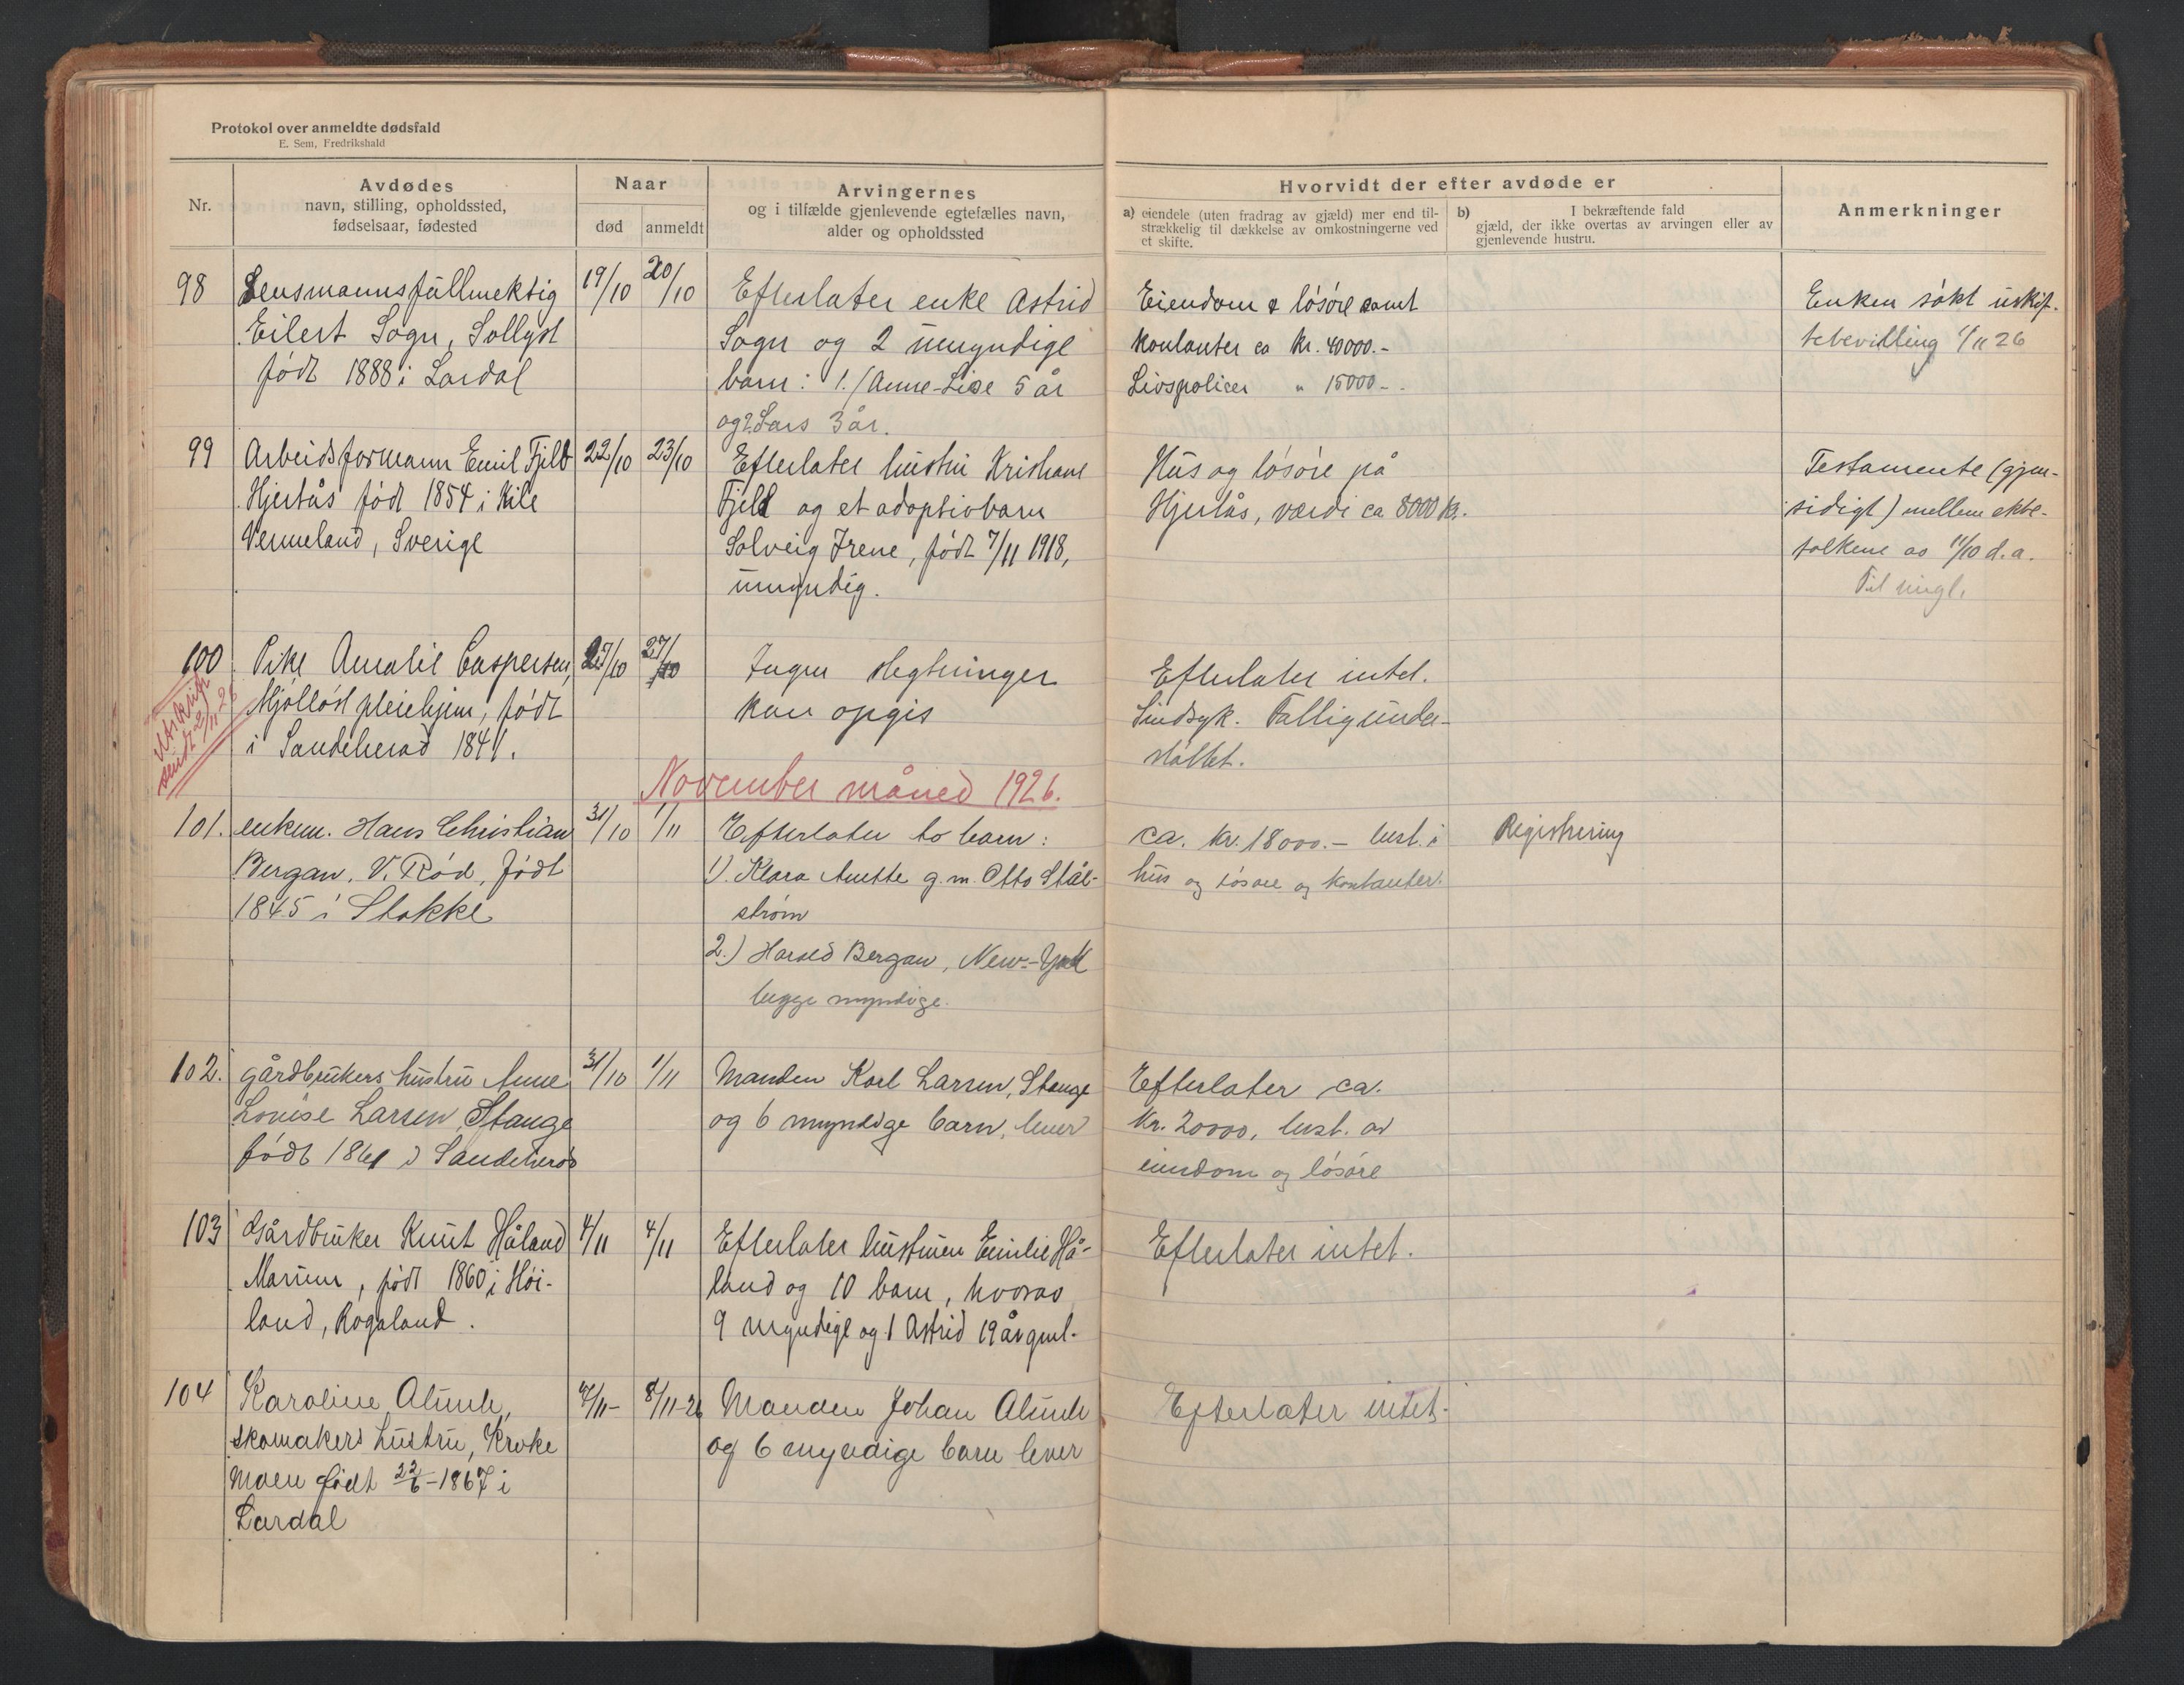 Protokol over anmeldte dødsfald
E. Sem, Fredrikshald
Nr.
Avdødes
navn, stilling, opholdssted,
fødselsaar, fødested
Naar
død
anmeldt
Arvingernes
og i tilfælde gjenlevende egtefælles navn,
alder og opholdssted
Hvorvidt der efter avdøde er
a) eiendele (uten fradrag av gjæld) mer end til-
strækkelig til dækkelse av omkostningerne ved
et skifte.
b) I bekræftende fald
gjæld, der ikke overtas av arvingen eller av
gjenlevende hustru.
Anmerkninger
98
Lensmannsfullmektig
Eilert Sogn, Sollyst
født 1888 i Lardal
19/10
20/10
Efterlater enke Astrid
Sogn og 2 umyndige
barn: 1./ Anne-Lise 5 år
og 2. Lars 3 år.
Eiendom & løsøre samt
kontanter ca kr. 40000.-
Livspolicer " 15000-.
Enken søkt uskif-
tebevilling 1/11 26
99
Arbeidsformann Emil Fjeld
Hjertås født 1854 i Kile
Vermeland, Sverige
22/10
23/10
Efterlater hustru Kristiane
Fjeld og et adoptivbarn
Solveig Irene, født 7/11 1918,
umyndig.
Hus og løsøre på
Hjertås, værdi ca 8000 kr.
Testamente (gjen-
sidigt) mellem ekte-
folkene av 11/10 d.a.
Til tingl.
100
Utskrift
sendt 2/11 26
Pike Amalie Caspersen,
Mjølløst pleiehjem, født
i Sandeherad 1841.
25/10
27/10
Ingen slegtninger
kan opgis
Efterlater intet.
Sindsyk. Fattigunder-
støttet.
November måned 1926.
101.
enkem. Hans Christian
Bergan, V. Rød, født
1845 i Stokke
31/10
1/11
Efterlater to barn:
1). Klara Anette g.m. Otto Stål-
strøm
2.) Harald Bergan, New-York
begge myndige.
ca. kr. 18000.- best. i
hus og løsøre og kontanter.
Registrering
102.
gårdbrukers hustru Anne
Lovise Larsen, Stange
født 1861 i Sandeherad
31/10
1/11
Manden Karl Larsen, Stange
og 6 myndige barn, lever
Efterlater ca.
kr. 20000, best. av
eiendom og løsøre
103
Gårdbruker Knut Håland
Marum, født 1860 i Høi-
land, Rogaland.
4/11
4/11
Efterlater hustruen Emilie Hå-
land og 10 barn, hvorav
9 myndige og 1 Astrid 19 år gml.
Efterlater intet.
104
Karoline Alunde,
skomakers hustru, Kroke
moen født 22/6-1867 i
Lardal
7/11-
8/11-26
Manden Johan Alunde
og 6 myndige barn lever
Efterlater intet.